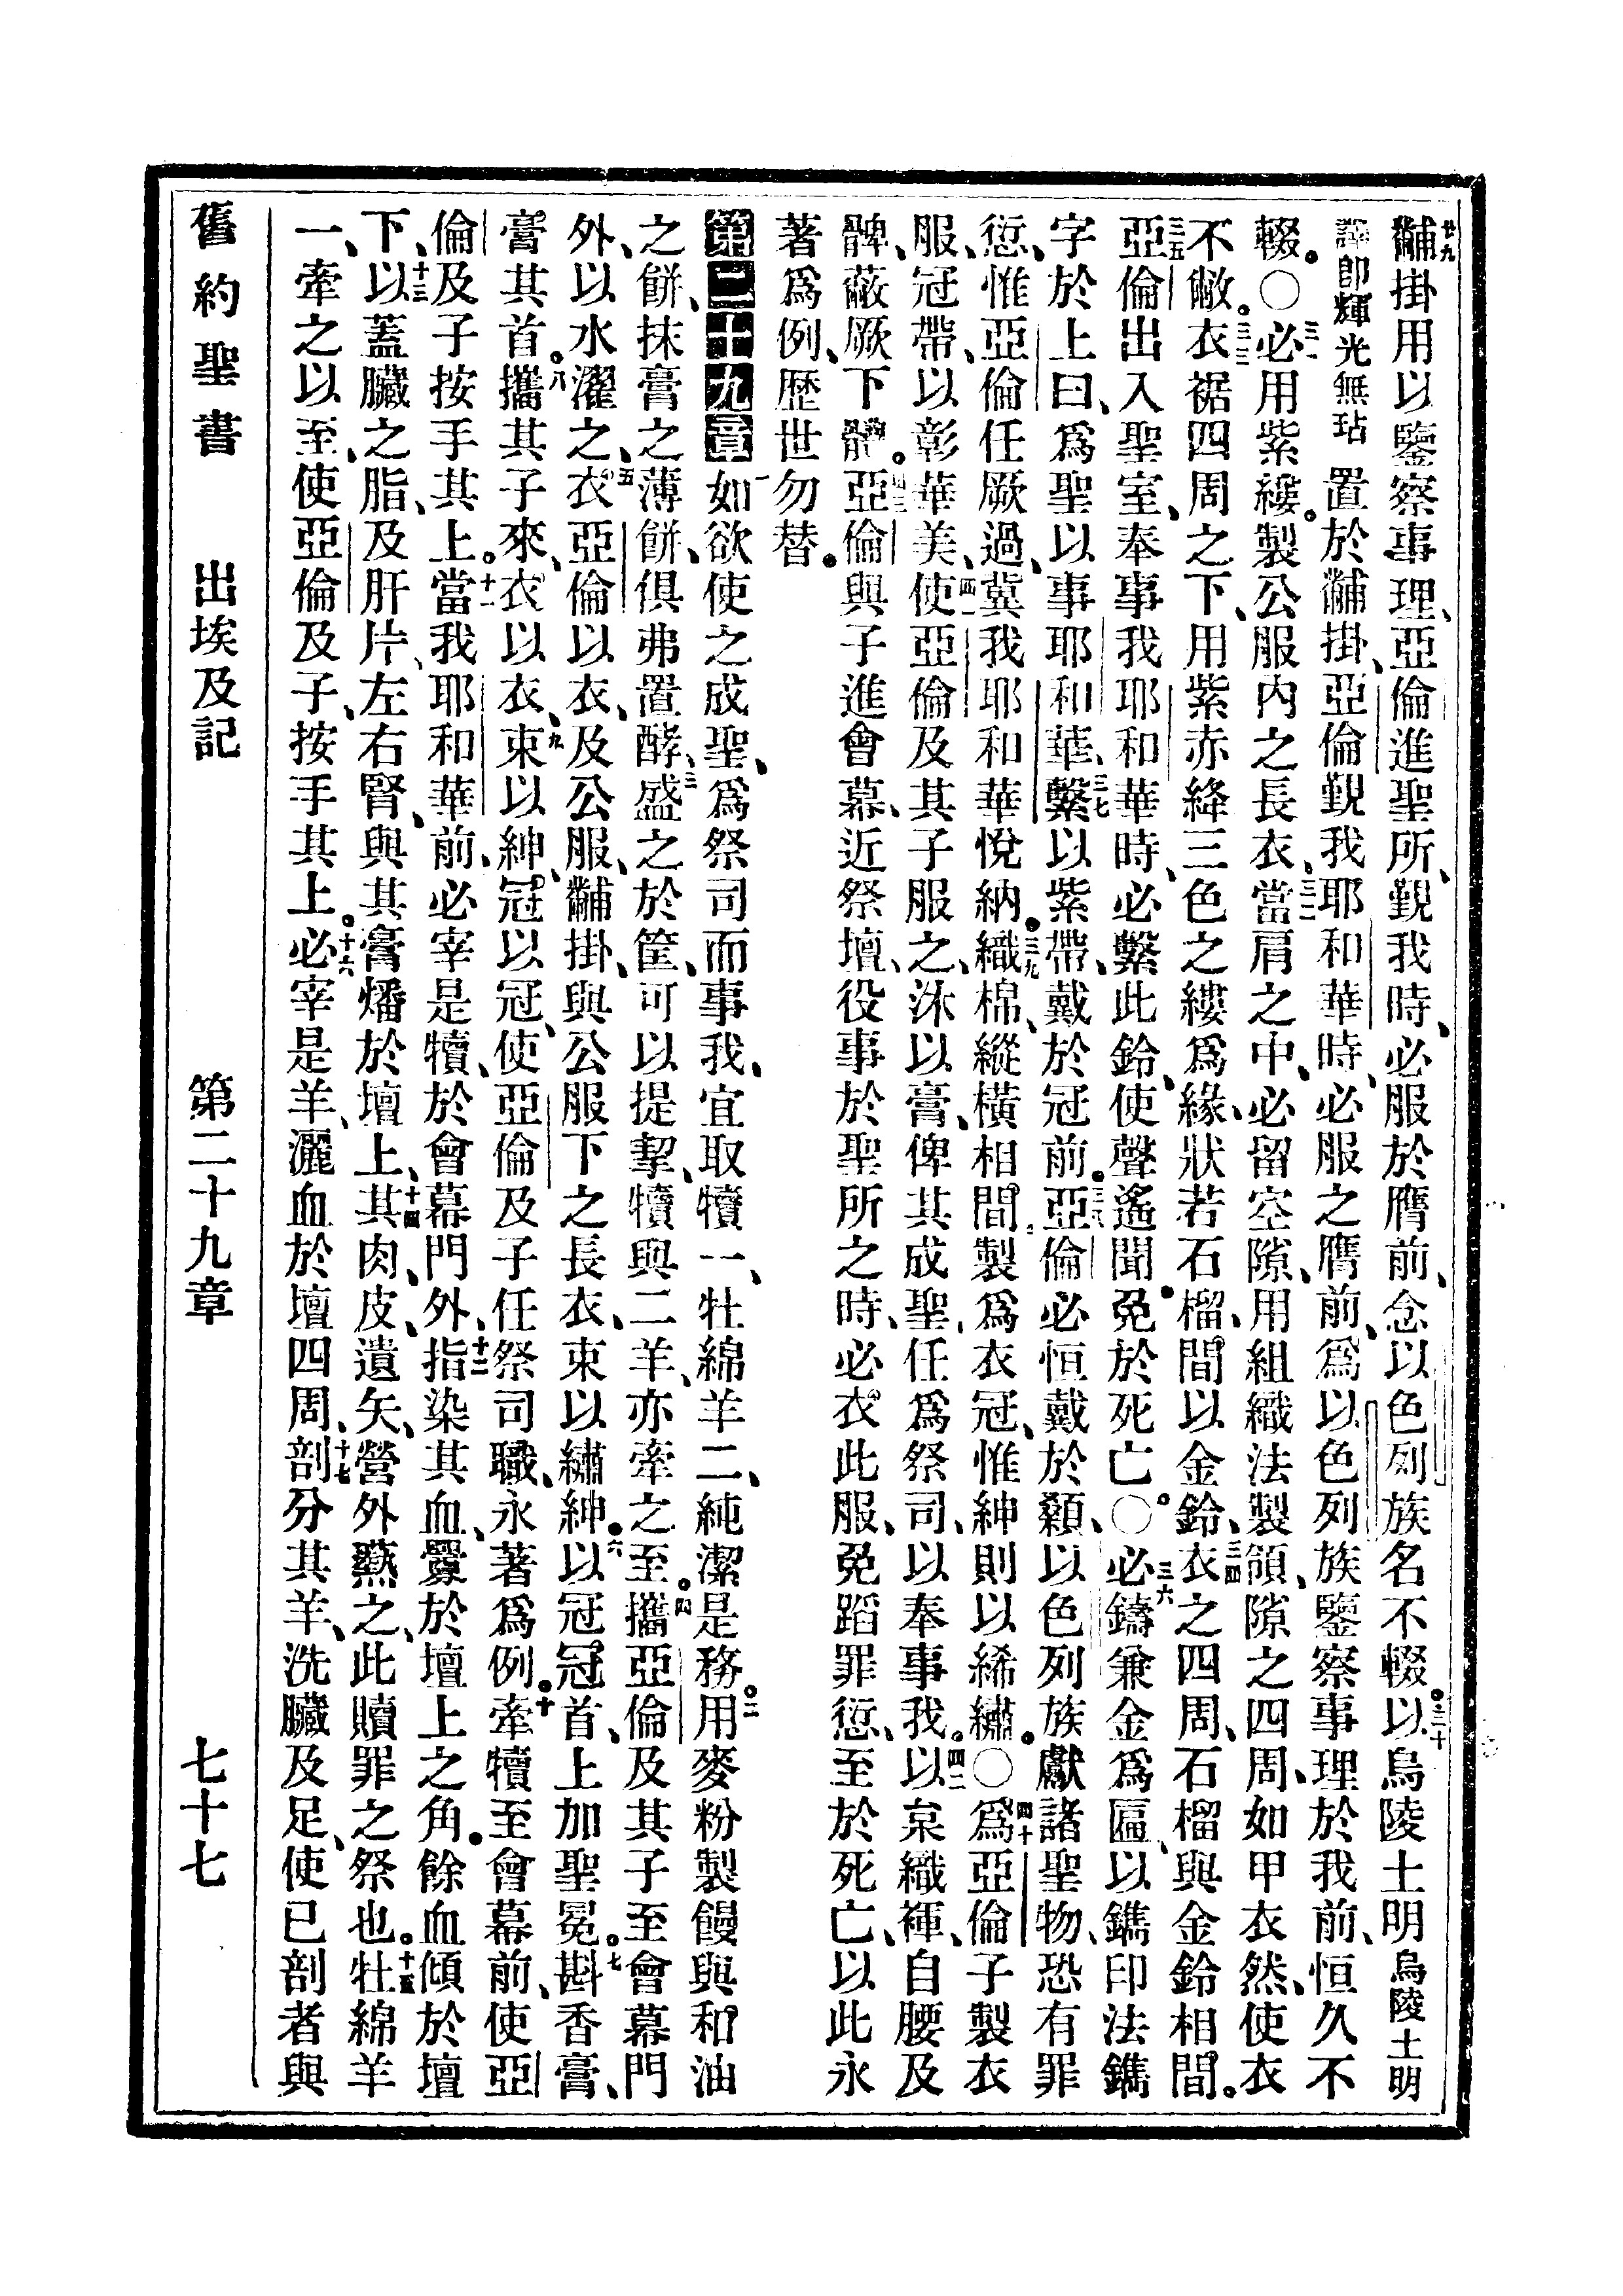 廿九黼掛用以鑒察事理、亞倫進聖所、覲我時、必服於膺前、念以色列族名不輟。三十以烏陵土明烏陵土明
譯卽輝光無玷置於黼掛、亞倫覲我耶和華時、必服之膺前、爲以色列族鑒察事理於我前、恒久不
輟。〇三一必用紫縷。製公服內之長衣、三二當肩之中、必留空隙、用組織法製領、隙之四周、如甲衣然、使衣
不敝。三三衣裾四周之下、用紫赤絳三色之縷爲緣、狀若石榴、間以金鈴、三四衣之四周、石榴與金鈴相間。
三五亞倫出入聖室、奉事我耶和華時、必繫此鈴、使聲遙聞。免於死亡。〇三六必鑄兼金爲匾、以鐫印法鐫
字於上曰、爲聖以事耶和華、三七繫以紫帶、戴於冠前。三八亞倫必恒戴於顙、以色列族獻諸聖物、恐有罪
愆、惟亞倫任厥過、冀我耶和華悅納。三九織棉、縱橫相間、製爲衣冠、惟紳則以絺繡。〇四十爲亞倫子製衣
服、冠帶、以彰華美、四一使亞倫及其子服之、沐以膏、俾其成聖、任爲祭司、以奉事我。四二以枲織褌、自腰及
髀、蔽厥下體。四三亞倫與子進會幕、近祭壇、役事於聖所之時、必衣此服、免蹈罪愆、至於死亡、以此永
著爲例、歷世勿替。
第二十九章一如欲使之成聖、爲祭司而事我、宜取犢一、牡綿羊二、純潔是務。二用麥粉製饅與和油
之餅、抹膏之薄餅、俱弗置酵、三盛之於筐、可以提挈、犢與二羊、亦牽之至。四攜亞倫及其子至會幕門
外、以水濯之、五衣亞倫以衣、及公服、黼掛、與公服下之長衣、束以繡紳。六以冠冠首、上加聖冕。七斟香膏、
膏其首。八攜其子來、衣以衣、九束以紳、冠以冠、使亞倫及子任祭司職、永著爲例。十牽犢至會幕前、使亞
倫及子按手其上。十一當我耶和華前、必宰是犢、於會幕門外、十二指染其血、釁於壇上之角。餘血傾於壇
下、十三以蓋臟之脂、及肝片、左右腎、與其膏燔於壇上、十四其肉、皮、遺矢、營外爇之、此贖罪之祭也。十五牡綿羊
一、牽之以至、使亞倫及子、按手其上。十六必宰是羊、灑血於壇四周、十七剖分其羊、洗臟及足、使已剖者與
舊約聖書 出埃及記 第二十九章 七十七